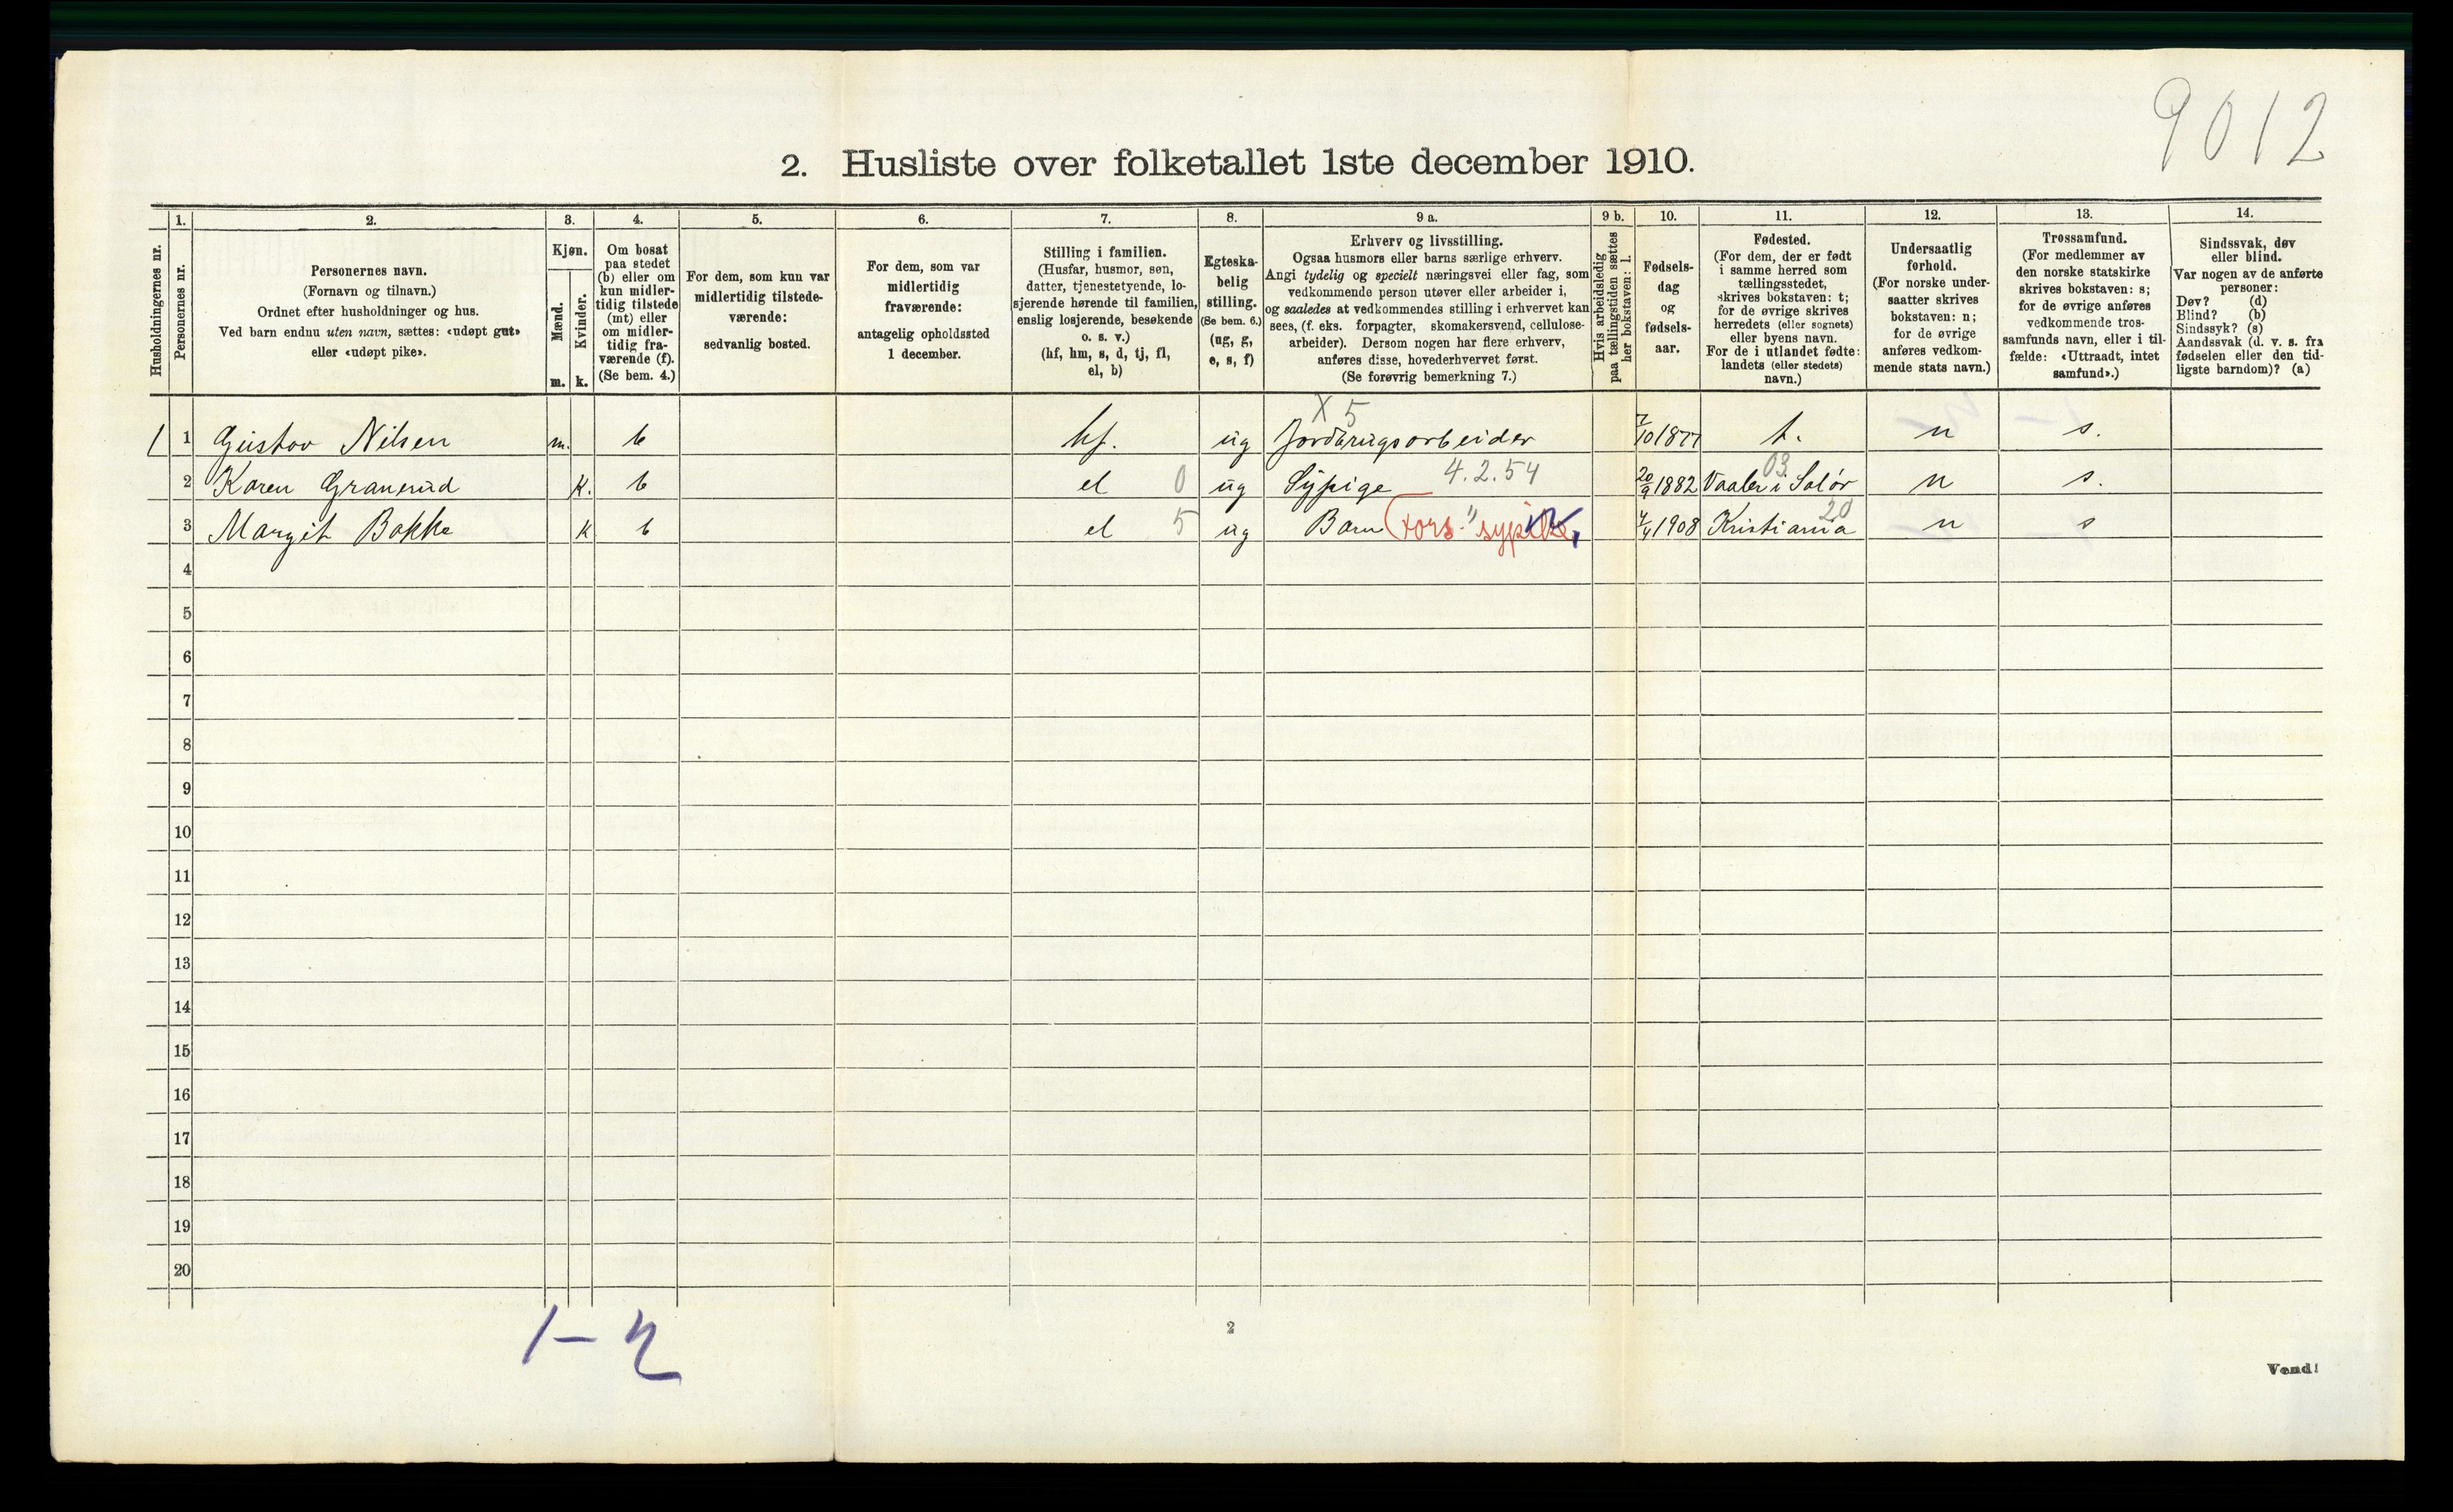 9012
2. Husliste over folketallet 1ste december 1910.
Husholdningernes nr.
1.
Personernes nr.
2.
Personernes navn.
(Fornavn og tilnavn.)
Ordnet efter husholdninger og hus.
Ved barn endnu uten navn, sættes: «udøpt gut»
eller «udøpt pike».
3.
Kjøn.
Mænd.
Kvinder.
m. k.
4.
Om bosat
paa stedet
(b) eller om
kun midler-
tidig tilstede
(mt) eller
om midler-
tidig fra-
værende (f).
(Se bem. 4.)
5.
For dem, som kun var
midlertidig tilstede-
værende:
sedvanlig bosted.
6.
For dem, som var
midlertidig
fraværende:
antagelig opholdssted
1 december.
7.
Stilling i familien.
(Husfar, husmor, søn,
datter, tjenestetyende, lo-
sjerende hørende til familien,
enslig losjerende, besøkende
o. s. v.)
(hf, hm, s, d, tj, fl,
el, b)
8.
Egteska-
belig
stilling.
(Se bem. 6.)
(ug, g,
e, s, f)
9 a.
Erhverv og livsstilling.
Ogsaa husmors eller barns særlige erhverv.
Angi tydelig og specielt næringsvei eller fag, som
vedkommende person utøver eller arbeider i,
og saaledes at vedkommendes stilling i erhvervet kan
sees, (f. eks. forpagter, skomakersvend, cellulose-
arbeider). Dersom nogen har flere erhverv,
anføres disse, hovederhvervet først.
(Se forøvrig bemerkning 7.)
9 b.
Hvis arbeidsledig
paa tællingstiden sættes
her bokstaven: l.
10.
Fødsels-
dag
og
fødsels-
aar.
11.
Fødested.
(For dem, der er født
i samme herred som
tællingsstedet,
skrives bokstaven: t;
for de øvrige skrives
herredets (eller sognets)
eller byens navn.
For de i utlandet fødte:
landets (eller stedets)
navn.)
12.
Undersaatlig
forhold.
(For norske under-
saatter skrives
bokstaven: n;
for de øvrige
anføres vedkom-
mende stats navn.)
13.
Trossamfund.
(For medlemmer av
den norske statskirke
skrives bokstaven: s;
for de øvrige anføres
vedkommende tros-
samfunds navn, eller i til-
fælde: «Uttraadt, intet
samfund».)
14.
Sindssvak, døv
eller blind.
Var nogen av de anførte
personer:
Døv? (d)
Blind? (b)
Sindssyk? (s)
Aandssvak (d. v. s. fra
fødselen eller den tid-
ligste barndom)? (a)
X 5
1 1 Gustav Nilsen m. b hf. ug Jordbrugsarbeider 7/10 1877 t. n s.
2 Karen Granerud k. b el 0 ug Sypige 4.2.54 20/9 1882 Vaaler i Solør 03 n s.
3 Margit Bakke k b el 5 ug Barn (fors. 1908 Kristiania 20 n s
4
5
6
7
8
9
10
11
12
13
14
15
16
17
18
19
20
1-2
2
Vend!